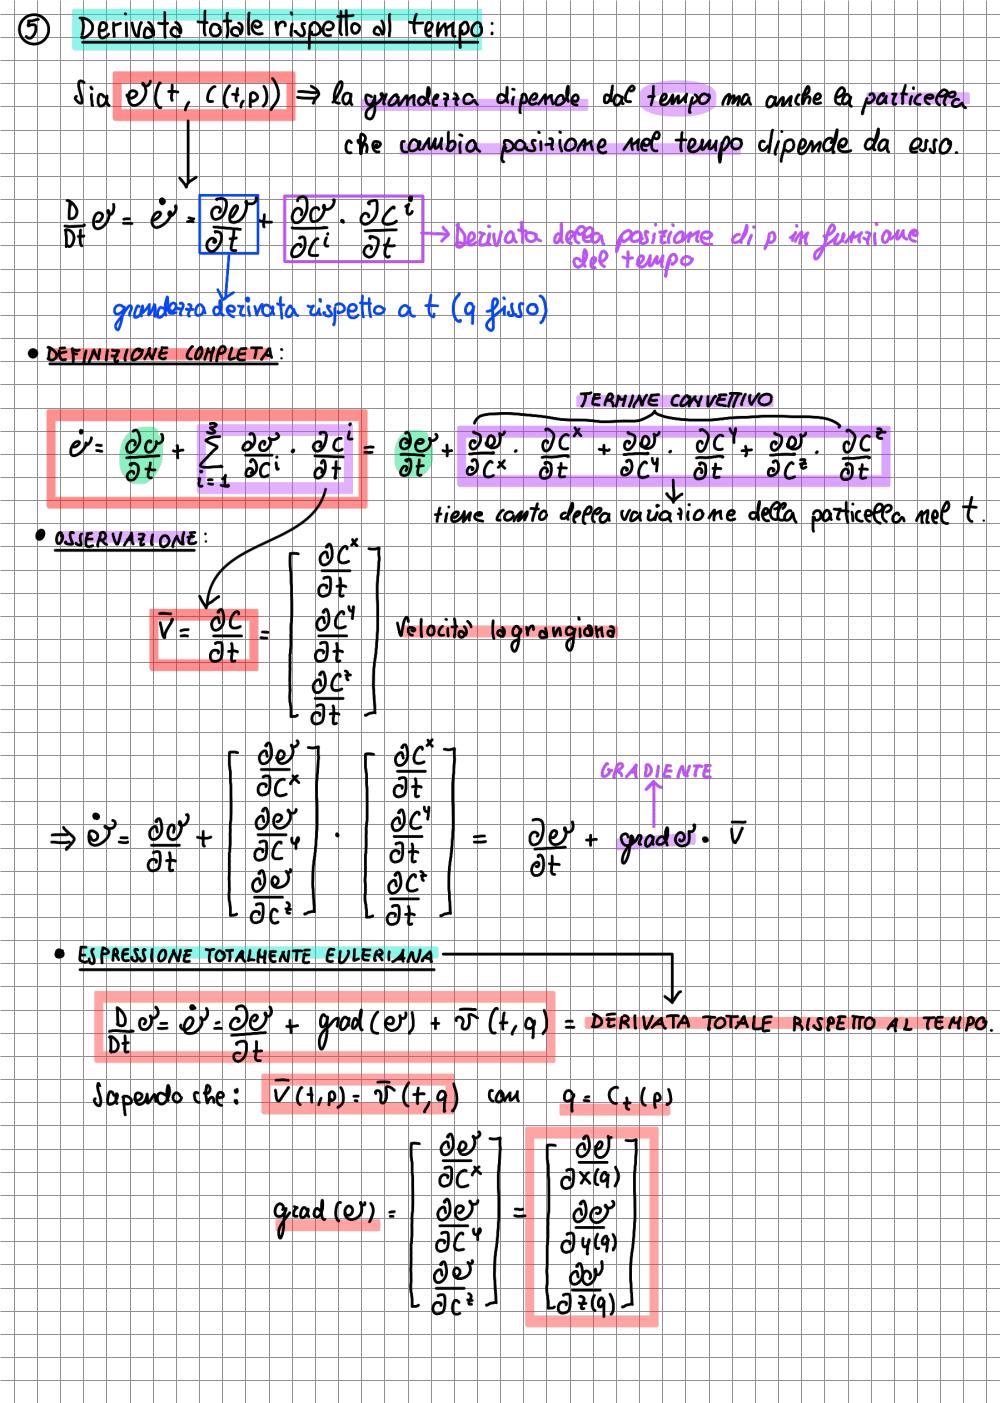 ⑤ Derivata totale rispetto al tempo:
Sia φ(t, C(t,p)) ⇒ la grandezza dipende dal tempo ma anche la particella
che cambia posizione nel tempo dipende da esso.
D/Dt φ = φ̇ = ∂φ/∂t + ∂φ/∂Cⁱ · ∂Cⁱ/∂t → Derivata della posizione di p in funzione
del tempo
grandezza derivata rispetto a t (q fisso)
• DEFINIZIONE COMPLETA:
TERMINE CONVETTIVO
φ̇ = ∂φ/∂t + Σ_{i=1}^{3} ∂φ/∂Cⁱ · ∂Cⁱ/∂t = ∂φ/∂t + ∂φ/∂Cˣ · ∂Cˣ/∂t + ∂φ/∂Cʸ · ∂Cʸ/∂t + ∂φ/∂Cᶻ · ∂Cᶻ/∂t
tiene conto della variazione della particella nel t.
• OSSERVAZIONE:
V̄ = ∂C/∂t = [∂Cˣ/∂t ∂Cʸ/∂t ∂Cᶻ/∂t] Velocità lagrangiana
GRADIENTE
⇒ φ̇ = ∂φ/∂t + [∂φ/∂Cˣ ∂φ/∂Cʸ ∂φ/∂Cᶻ] · [∂Cˣ/∂t ∂Cʸ/∂t ∂Cᶻ/∂t] = ∂φ/∂t + grad φ · V̄
• ESPRESSIONE TOTALMENTE EULERIANA
D/Dt φ = φ̇ = ∂φ/∂t + grad(φ) + v̄(t,q) = DERIVATA TOTALE RISPETTO AL TEMPO.
Sapendo che: V̄(t,p) = v̄(t,q) con q = C_t(p)
grad(φ) = [∂φ/∂Cˣ ∂φ/∂Cʸ ∂φ/∂Cᶻ] = [∂φ/∂x(q) ∂φ/∂y(q) ∂φ/∂z(q)]